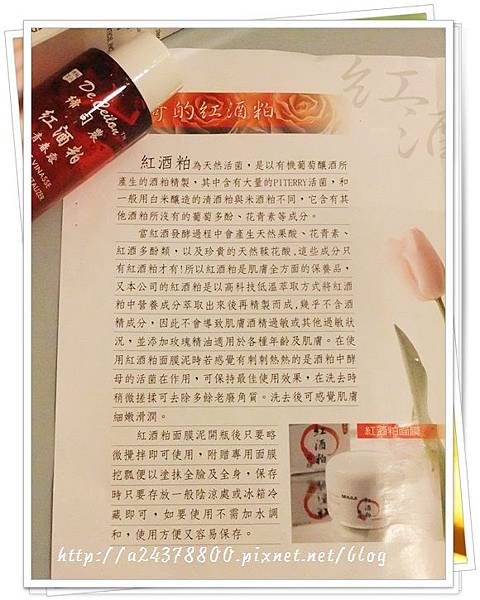 De Beilou
紅酒粕
青春露
VINASSE
VITALIZER
奇的紅酒粕
紅酒
紅酒粕為天然活菌，是以有機葡萄釀酒所
產生的酒粕精製，其中含有大量的PITERRY活菌，和
一般用白米釀造的清酒粕與米酒粕不同，它含有其
他酒粕所沒有的葡萄多酚、花青素等成分。
當紅酒發酵過程中會產生天然果酸、花青素、
紅酒多酚類，以及珍貴的天然鞣花酸,這些成分只
有紅酒粕才有!所以紅酒粕是肌膚全方面的保養品，
又本公司的紅酒粕是以高科技低溫萃取方式將紅酒
粕中營養成分萃取出來後再精製而成,幾乎不含酒
精成分，因此不會導致肌膚酒精過敏或其他過敏狀
況，並添加玫瑰精油適用於各種年齡及肌膚。在使
用紅酒粕面膜泥時若感覺有刺刺熱熱的是酒粕中酵
母的活菌在作用，可保持最佳使用效果，在洗去時
稍微搓揉可去除多餘老廢角質。洗去後可感覺肌膚
細嫩滑潤。
紅酒粕面膜泥開瓶後只要略
微攪拌即可使用，附贈專用面膜
挖瓢便以塗抹全臉及全身，保存
時只要存放一般陰涼處或冰箱冷
藏即可，如要使用不需加水調
和，使用方便又容易保存。
紅酒粕面膜
紅酒粕
http://a24378800.pixnet.net/blog